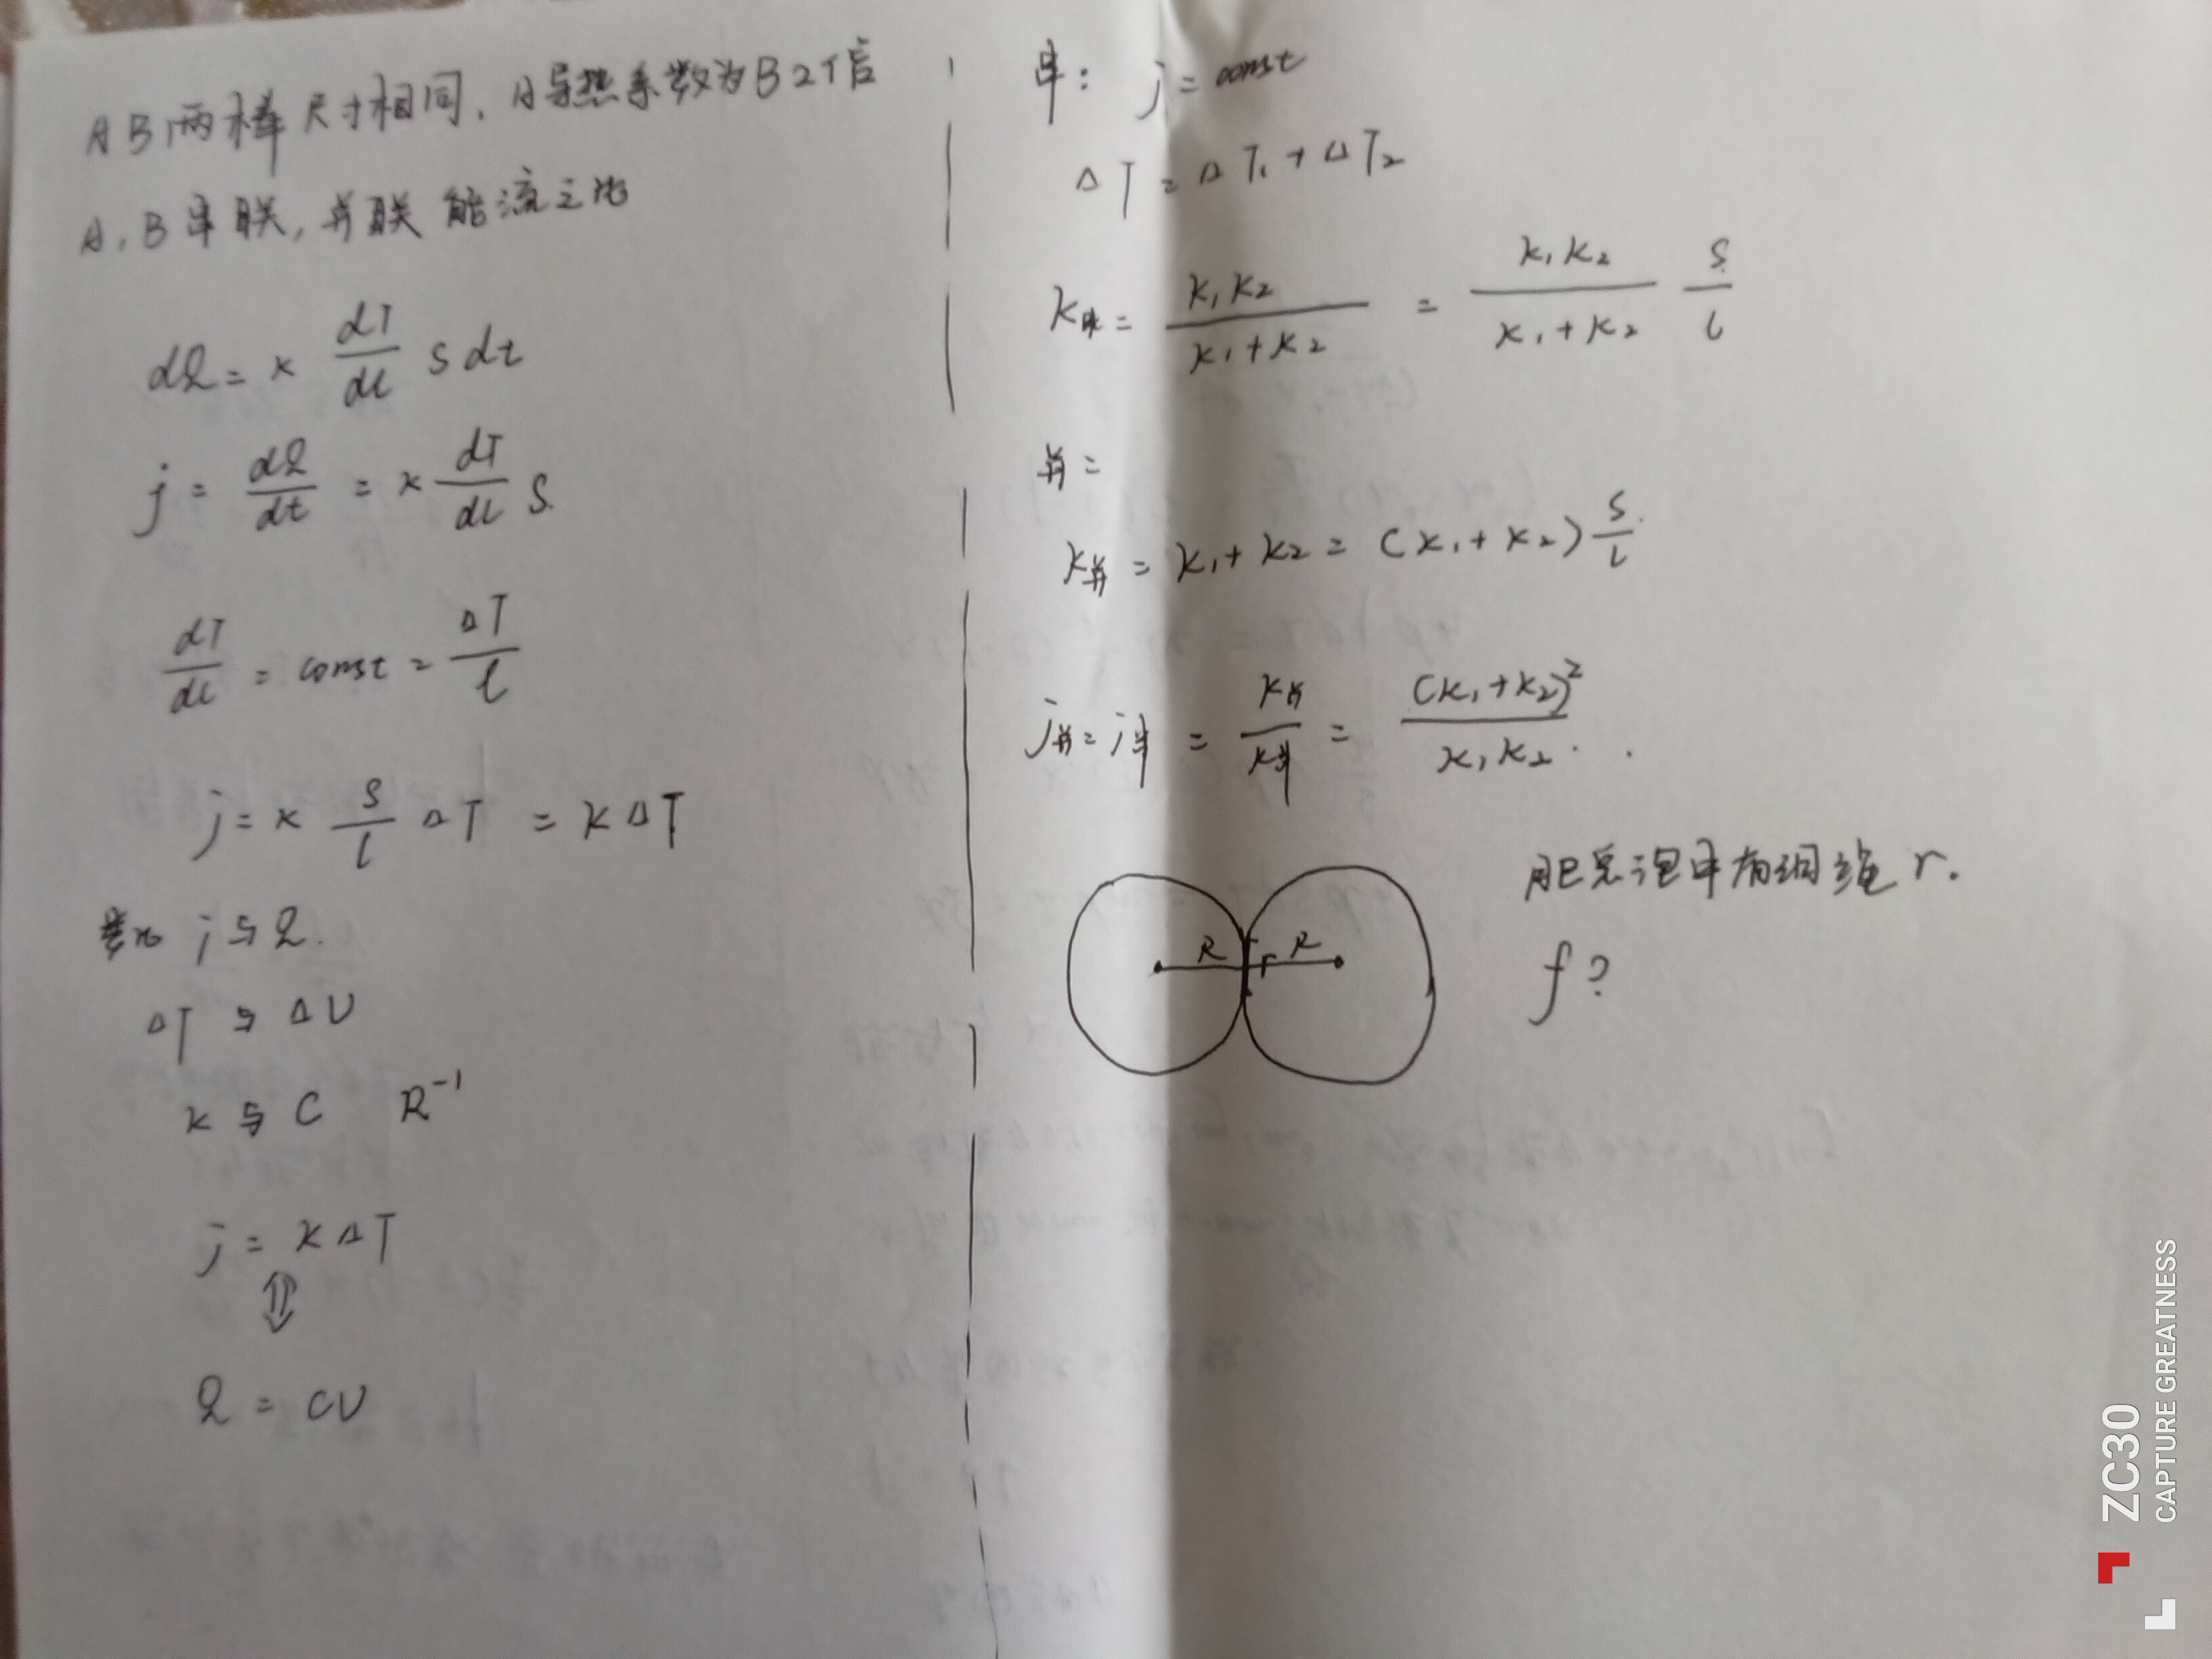 AB两棒尺寸相同,A导热系数为B2倍
A,B串联,并联能流之比
dQ = κ dT/dl S dt
j = dQ/dt = κ dT/dl S.
dT/dl = const = ΔT/l
j = κ S/l ΔT = KΔT
类比 j与Q.
ΔT与ΔU
K与C R⁻¹
j = KΔT
⇕
Q = CU
串: j = const
ΔT = ΔT₁ + ΔT₂
K串 = K₁K₂/(K₁+K₂) = κ₁κ₂/(κ₁+κ₂) S/l
并=
K并 = K₁+K₂ = (κ₁+κ₂) S/l
j并 = j串 = K并/K串 = (κ₁+κ₂)²/κ₁κ₂ .
肥皂泡中有细绳 r.
R r R
f?
ZC30
CAPTURE GREATNESS